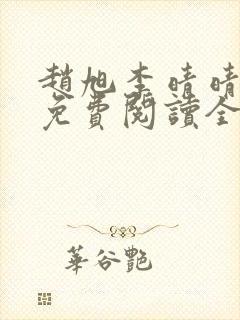 趙旭李晴晴
免費閱讀全
華谷艷